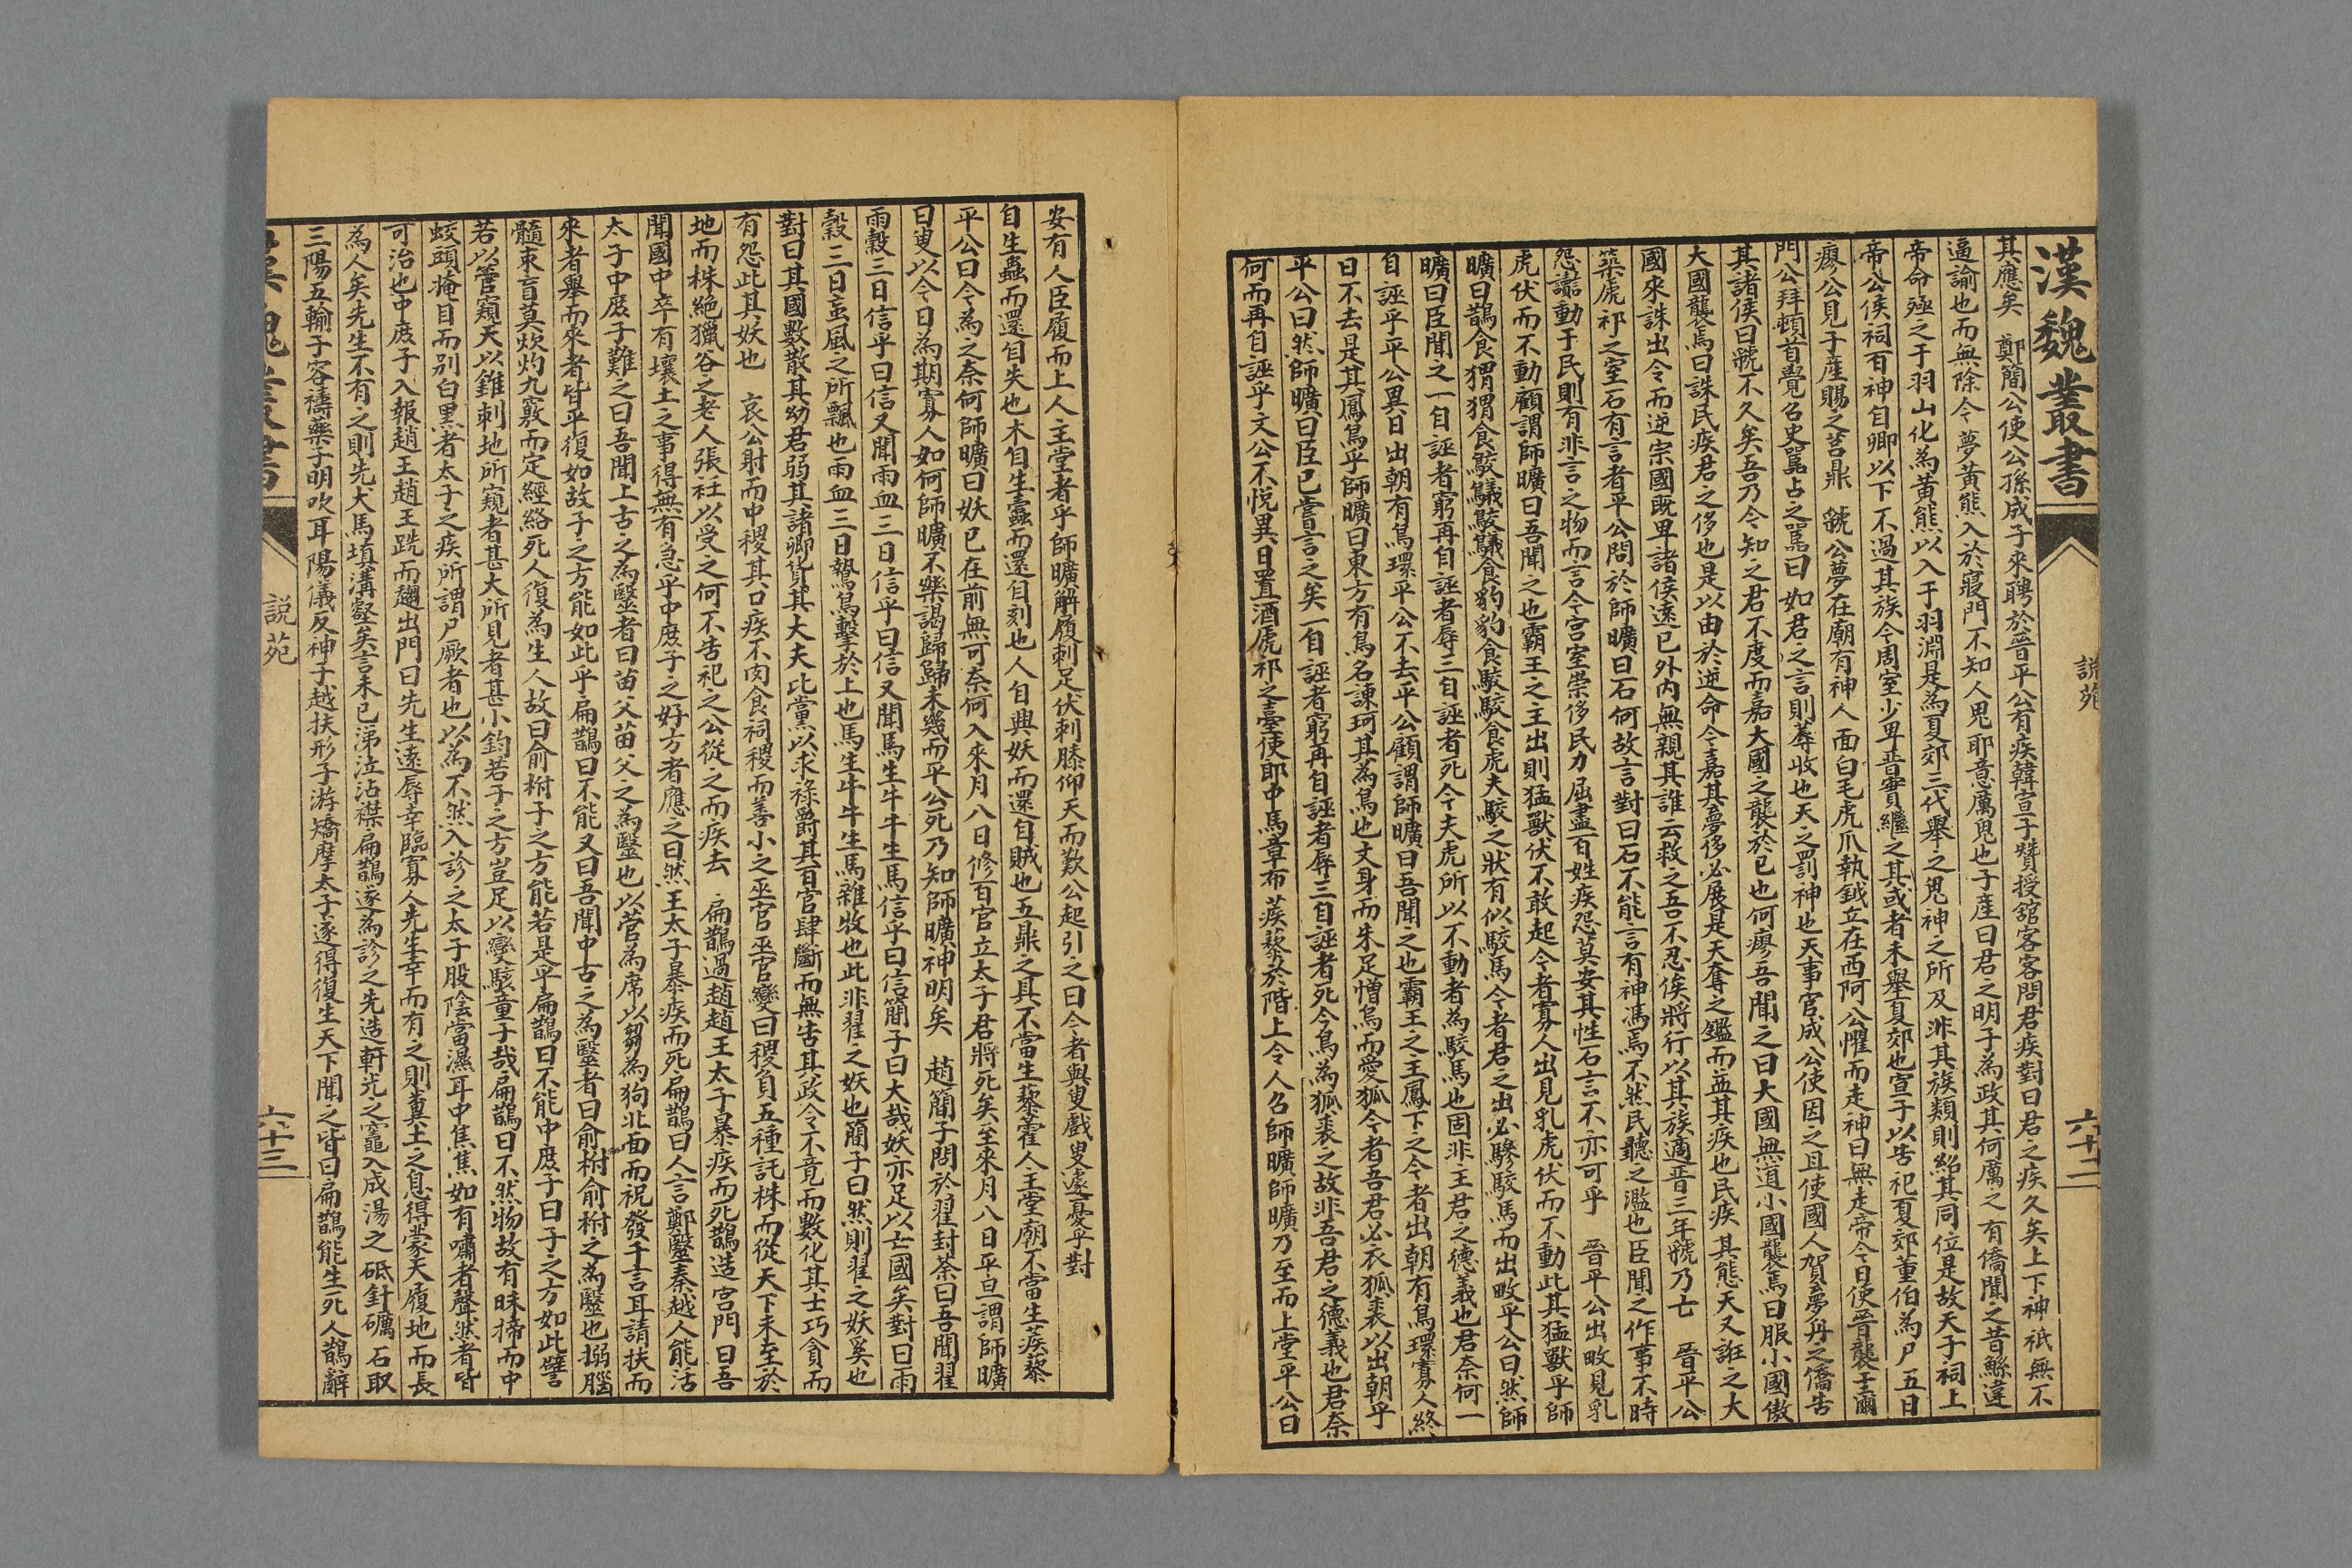 漢魏叢書
說苑
六十二
其應矣　鄭簡公使公孫成子來聘於晉平公有疾韓宣子贊授舘客客問君疾對曰君之疾久矣上下神祇無不
遍諭也而無除今夢黃熊入於寢門不知人鬼耶意厲鬼也子產曰君之明子為政其何厲之有僑聞之昔鯀違
帝命殛之于羽山化為黃熊以入于羽淵是為夏郊三代舉之鬼神之所及非其族類則紹其同位是故天子祠上
帝公侯祠百神自卿以下不過其族今周室少卑晉實繼之其或者未舉夏郊也宣子以告祀夏郊董伯為尸五日
瘳公見子產賜之莒鼎　虢公夢在廟有神人面白毛虎爪執鉞立在西阿公懼而走神曰無走帝令日使晉襲于爾
門公拜頓首覺召史嚚占之嚚曰如君之言則蓐收也天之罰神也天事官成公使因之且使國人賀夢舟之僑告
其諸侯曰虢不久矣吾乃今知之君不度而嘉大國之襲於已也何瘳吾聞之曰大國無道小國襲焉曰服小國傲
大國襲焉曰誅民疾君之侈也是以由於逆命今嘉其夢侈必展是天奪之鑑而益其疾也民疾其態天又誑之大
國來誅出令而逆宗國既卑諸侯遠已外內無親其誰云救之吾不忍俟將行以其族適晉三年虢乃亡　晉平公
築虒祁之室石有言者平公問於師曠曰石何故言對曰石不能言有神馮焉不然民聽之濫也臣聞之作事不時
怨讟動于民則有非言之物而言今宮室崇侈民力屈盡百姓疾怨莫安其性石言不亦可乎　晉平公出畋見乳
虎伏而不動顧謂師曠曰吾聞之也霸王之主出則猛獸伏不敢起今者寡人出見乳虎伏而不動此其猛獸乎師
曠曰鵲食猬猬食鵔鸃鵔鸃食豹豹食駮駮食虎夫駮之狀有似駮馬今者君之出必驂駮馬而出畋乎公曰然師
曠曰臣聞之一自誣者窮再自誣者辱三自誣者死今夫虎所以不動者為駮馬也固非主君之德義也君奈何一
自誣乎平公異日出朝有鳥環平公不去平公顧謂師曠曰吾聞之也霸王之主鳳下之今者出朝有鳥環寡人終
日不去是其鳳鳥乎師曠曰東方有鳥名諫珂其為鳥也文身而朱足憎鳥而愛狐今者吾君必衣狐裘以出朝乎
平公曰然師曠曰臣已嘗言之矣一自誣者窮再自誣者辱三自誣者死今鳥為狐裘之故非吾君之德義也君奈
何而再自誣乎文公不悅異日置酒虒祁之臺使郎中馬章布蒺藜於階上令人召師曠師曠乃至而上堂平公曰
安有人臣履而上人主堂者乎師曠解履刺足伏刺膝仰天而歎公起引之曰今者與叟戲叟遽憂乎對
自生蟲而還自失也木自生蠹而還自刻也人自興妖而還自賊也五鼎之具不當生藜藿人主堂廟不當生蒺藜
平公曰今為之奈何師曠曰妖已在前無可奈何入來月八日修百官立太子君將死矣至來月八日平旦謂師曠
曰叟以今日為期寡人如何師曠不樂謁歸歸未幾而平公死乃知師曠神明矣　趙簡子問於翟封荼曰吾聞翟
雨穀三日信乎曰信又聞雨血三日信乎曰信又聞馬生牛牛生馬信乎曰信簡子曰大哉妖亦足以亡國矣對曰雨
穀三日䖟風之所飄也雨血三日鷙鳥擊於上也馬生牛牛生馬雜牧也此非翟之妖也簡子曰然則翟之妖奚也
對曰其國數散其幼君弱其諸卿貨其大夫比黨以求祿爵其百官肆斷而無告其政令不竟而數化其士巧貪而
有怨此其妖也　哀公射而中稷其口疾不肉食祠稷而善小之巫官巫官變曰稷負五種託株而從天下未至於
地而株絕獵谷之老人張衽以受之何不告祀之公從之而疾去　扁鵲過趙趙王太子暴疾而死鵲造宮門曰吾
聞國中卒有壤土之事得無有急乎中庶子之好方者應之曰然王太子暴疾而死扁鵲曰人言鄭醫秦越人能活
太子中庶子難之曰吾聞上古之為醫者曰苗父苗父之為醫也以菅為席以芻為狗北面而祝發十言耳請扶而
來者舉而來者皆平復如故子之方能如此乎扁鵲曰不能又曰吾聞中古之為醫者曰俞柎俞柎之為醫也搦腦
髓束肓莫炊灼九竅而定經絡死人復為生人故曰俞柎子之方能若是乎扁鵲曰不能中庶子曰子之方如此譬
若以管窺天以錐刺地所窺者甚大所見者甚小鈞若子之方豈足以變駭童子哉扁鵲曰不然物故有昧揥而中
蛟頭掩目而別白黑者太子之疾所謂尸厥者也以為不然入診之太子股陰當濕耳中焦焦如有嘯者聲然者皆
可治也中庶子入報趙王趙王跣而趨出門曰先生遠辱幸臨寡人先生幸而有之則糞土之息得蒙天履地而長
為人矣先生不有之則先犬馬填溝壑矣言未已涕泣沾襟扁鵲遂為診之先造軒光之竈八成湯之砥針礪石取
三陽五輸子容擣藥子明吹耳陽儀反神子越扶形子游矯摩太子遂得復生天下聞之皆曰扁鵲能生死人鵲辭
說苑
六十三